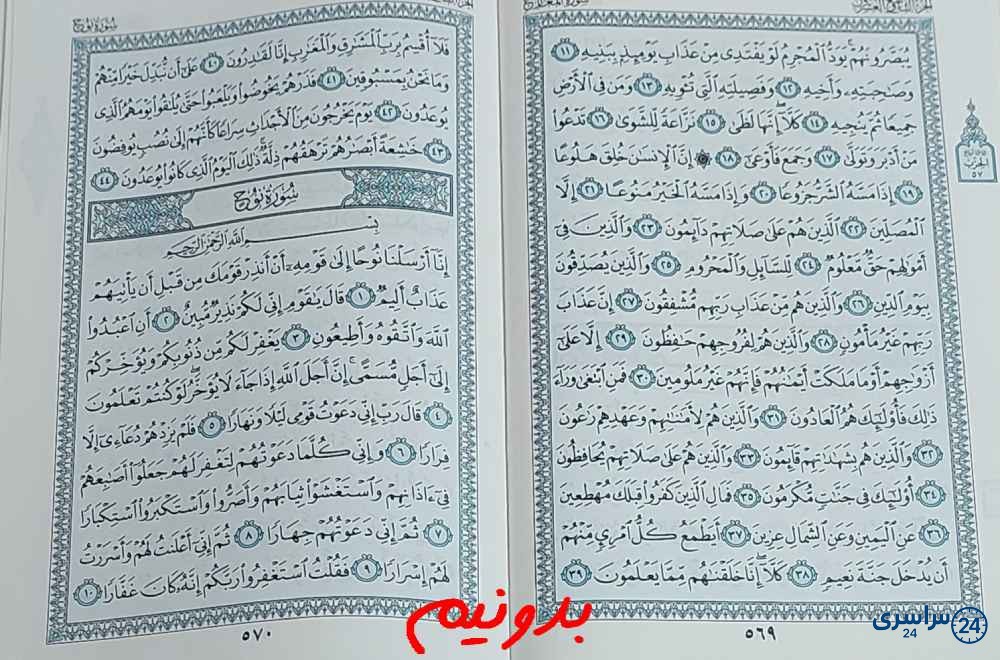 يُبَصَّرُونَهُمْ يَوَدُّ ٱلْمُجْرِمُ لَوْ يَفْتَدِى مِنْ عَذَابِ يَوْمِئِذٍۭ بِبَنِيهِ ١١
وَصَٰحِبَتِهِۦ وَأَخِيهِ ١٢ وَفَصِيلَتِهِ ٱلَّتِى تُـْٔوِيهِ ١٣ وَمَن فِى ٱلْأَرْضِ
جَمِيعًا ثُمَّ يُنجِيهِ ١٤ كَلَّآ إِنَّهَا لَظَىٰ ١٥ نَزَّاعَةً لِّلشَّوَىٰ ١٦ تَدْعُوا۟
مَنْ أَدْبَرَ وَتَوَلَّىٰ ١٧ وَجَمَعَ فَأَوْعَىٰٓ ١٨ ۞ إِنَّ ٱلْإِنسَٰنَ خُلِقَ هَلُوعًا
١٩ إِذَا مَسَّهُ ٱلشَّرُّ جَزُوعًا ٢٠ وَإِذَا مَسَّهُ ٱلْخَيْرُ مَنُوعًا ٢١ إِلَّا
ٱلْمُصَلِّينَ ٢٢ ٱلَّذِينَ هُمْ عَلَىٰ صَلَاتِهِمْ دَآئِمُونَ ٢٣ وَٱلَّذِينَ فِىٓ
أَمْوَٰلِهِمْ حَقٌّ مَّعْلُومٌ ٢٤ لِّلسَّآئِلِ وَٱلْمَحْرُومِ ٢٥ وَٱلَّذِينَ يُصَدِّقُونَ
بِيَوْمِ ٱلدِّينِ ٢٦ وَٱلَّذِينَ هُم مِّنْ عَذَابِ رَبِّهِم مُّشْفِقُونَ ٢٧ إِنَّ عَذَابَ
رَبِّهِمْ غَيْرُ مَأْمُونٍ ٢٨ وَٱلَّذِينَ هُمْ لِفُرُوجِهِمْ حَٰفِظُونَ ٢٩ إِلَّا عَلَىٰٓ
أَزْوَٰجِهِمْ أَوْ مَا مَلَكَتْ أَيْمَٰنُهُمْ فَإِنَّهُمْ غَيْرُ مَلُومِينَ ٣٠ فَمَنِ ٱبْتَغَىٰ وَرَآءَ
ذَٰلِكَ فَأُو۟لَٰٓئِكَ هُمُ ٱلْعَادُونَ ٣١ وَٱلَّذِينَ هُمْ لِأَمَٰنَٰتِهِمْ وَعَهْدِهِمْ رَٰعُونَ
٣٢ وَٱلَّذِينَ هُم بِشَهَٰدَٰتِهِمْ قَآئِمُونَ ٣٣ وَٱلَّذِينَ هُمْ عَلَىٰ صَلَاتِهِمْ يُحَافِظُونَ
٣٤ أُو۟لَٰٓئِكَ فِى جَنَّٰتٍ مُّكْرَمُونَ ٣٥ فَمَالِ ٱلَّذِينَ كَفَرُوا۟ قِبَلَكَ مُهْطِعِينَ
٣٦ عَنِ ٱلْيَمِينِ وَعَنِ ٱلشِّمَالِ عِزِينَ ٣٧ أَيَطْمَعُ كُلُّ ٱمْرِئٍ مِّنْهُمْ
أَن يُدْخَلَ جَنَّةَ نَعِيمٍ ٣٨ كَلَّآ إِنَّا خَلَقْنَٰهُم مِّمَّا يَعْلَمُونَ ٣٩
٥٦٩
الحزب
٥٧
سُورَةُ نُوحٍ
فَلَآ أُقْسِمُ بِرَبِّ ٱلْمَشَٰرِقِ وَٱلْمَغَٰرِبِ إِنَّا لَقَٰدِرُونَ ٤٠ عَلَىٰٓ أَن نُّبَدِّلَ خَيْرًا مِّنْهُمْ
وَمَا نَحْنُ بِمَسْبُوقِينَ ٤١ فَذَرْهُمْ يَخُوضُوا۟ وَيَلْعَبُوا۟ حَتَّىٰ يُلَٰقُوا۟ يَوْمَهُمُ ٱلَّذِى
يُوعَدُونَ ٤٢ يَوْمَ يَخْرُجُونَ مِنَ ٱلْأَجْدَاثِ سِرَاعًا كَأَنَّهُمْ إِلَىٰ نُصُبٍ يُوفِضُونَ
٤٣ خَٰشِعَةً أَبْصَٰرُهُمْ تَرْهَقُهُمْ ذِلَّةٌ ذَٰلِكَ ٱلْيَوْمُ ٱلَّذِى كَانُوا۟ يُوعَدُونَ ٤٤
سُورَةُ نُوحٍ
بِسْمِ ٱللَّهِ ٱلرَّحْمَٰنِ ٱلرَّحِيمِ
إِنَّآ أَرْسَلْنَا نُوحًا إِلَىٰ قَوْمِهِۦٓ أَنْ أَنذِرْ قَوْمَكَ مِن قَبْلِ أَن يَأْتِيَهُمْ
عَذَابٌ أَلِيمٌ ١ قَالَ يَٰقَوْمِ إِنِّى لَكُمْ نَذِيرٌ مُّبِينٌ ٢ أَنِ ٱعْبُدُوا۟
ٱللَّهَ وَٱتَّقُوهُ وَأَطِيعُونِ ٣ يَغْفِرْ لَكُم مِّن ذُنُوبِكُمْ وَيُؤَخِّرْكُمْ
إِلَىٰٓ أَجَلٍ مُّسَمًّى إِنَّ أَجَلَ ٱللَّهِ إِذَا جَآءَ لَا يُؤَخَّرُ لَوْ كُنتُمْ تَعْلَمُونَ
٤ قَالَ رَبِّ إِنِّى دَعَوْتُ قَوْمِى لَيْلًا وَنَهَارًا ٥ فَلَمْ يَزِدْهُمْ دُعَآءِىٓ إِلَّا
فِرَارًا ٦ وَإِنِّى كُلَّمَا دَعَوْتُهُمْ لِتَغْفِرَ لَهُمْ جَعَلُوٓا۟ أَصَٰبِعَهُمْ
فِىٓ ءَاذَانِهِمْ وَٱسْتَغْشَوْا۟ ثِيَابَهُمْ وَأَصَرُّوا۟ وَٱسْتَكْبَرُوا۟ ٱسْتِكْبَارًا
٧ ثُمَّ إِنِّى دَعَوْتُهُمْ جِهَارًا ٨ ثُمَّ إِنِّىٓ أَعْلَنتُ لَهُمْ وَأَسْرَرْتُ
لَهُمْ إِسْرَارًا ٩ فَقُلْتُ ٱسْتَغْفِرُوا۟ رَبَّكُمْ إِنَّهُۥ كَانَ غَفَّارًا ١٠
٥٧٠
بدونیم
سراسری 24
24